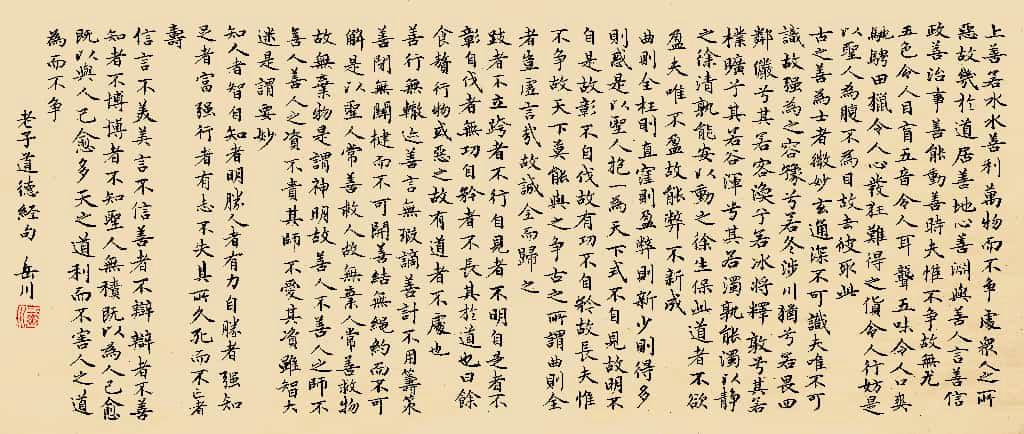 上善若水水善利萬物而不爭處衆人之所
惡故幾於道居善地心善淵與善人言善信
政善治事善能動善時夫惟不爭故無尤
五色令人目盲五音令人耳聾五味令人口爽
馳騁田獵令人心發狂難得之貨令人行妨是
以聖人為腹不為目故去彼取此
古之善為士者微妙玄通深不可識夫唯不可
識故强為之容豫兮若冬涉川猶兮若畏四
鄰儼兮其若容渙兮若冰將釋敦兮其若
樸曠兮其若谷渾兮其若濁孰能濁以靜
之徐清孰能安以動之徐生保此道者不欲
盈夫唯不盈故能弊不新成
曲則全枉則直窪則盈弊則新少則得多
則惑是以聖人抱一為天下式不自見故明不
自是故彰不自伐故有功不自矜故長夫惟
不爭故天下莫能與之爭古之所謂曲則全
者豈虛言哉故誠全而歸之
跂者不立跨者不行自見者不明自是者不
彰自伐者無功自矜者不長其於道也曰餘
食贅行物或惡之故有道者不處也
善行無轍迹善言無瑕謫善計不用籌策
善閉無關楗而不可開善結無繩約而不可
解是以聖人常善救人故無棄人常善救物
故無棄物是謂神明故善人不善人之師不
善人善人之資不貴其師不愛其資雖智大
迷是謂要妙
知人者智自知者明勝人者有力自勝者强知
足者富强行者有志不失其所久死而不亡者
壽
信言不美美言不信善者不辯辯者不善
知者不博博者不知聖人無積既以為人己愈
既以與人己愈多天之道利而不害人之道
為而不爭
老子道德經句 岳川